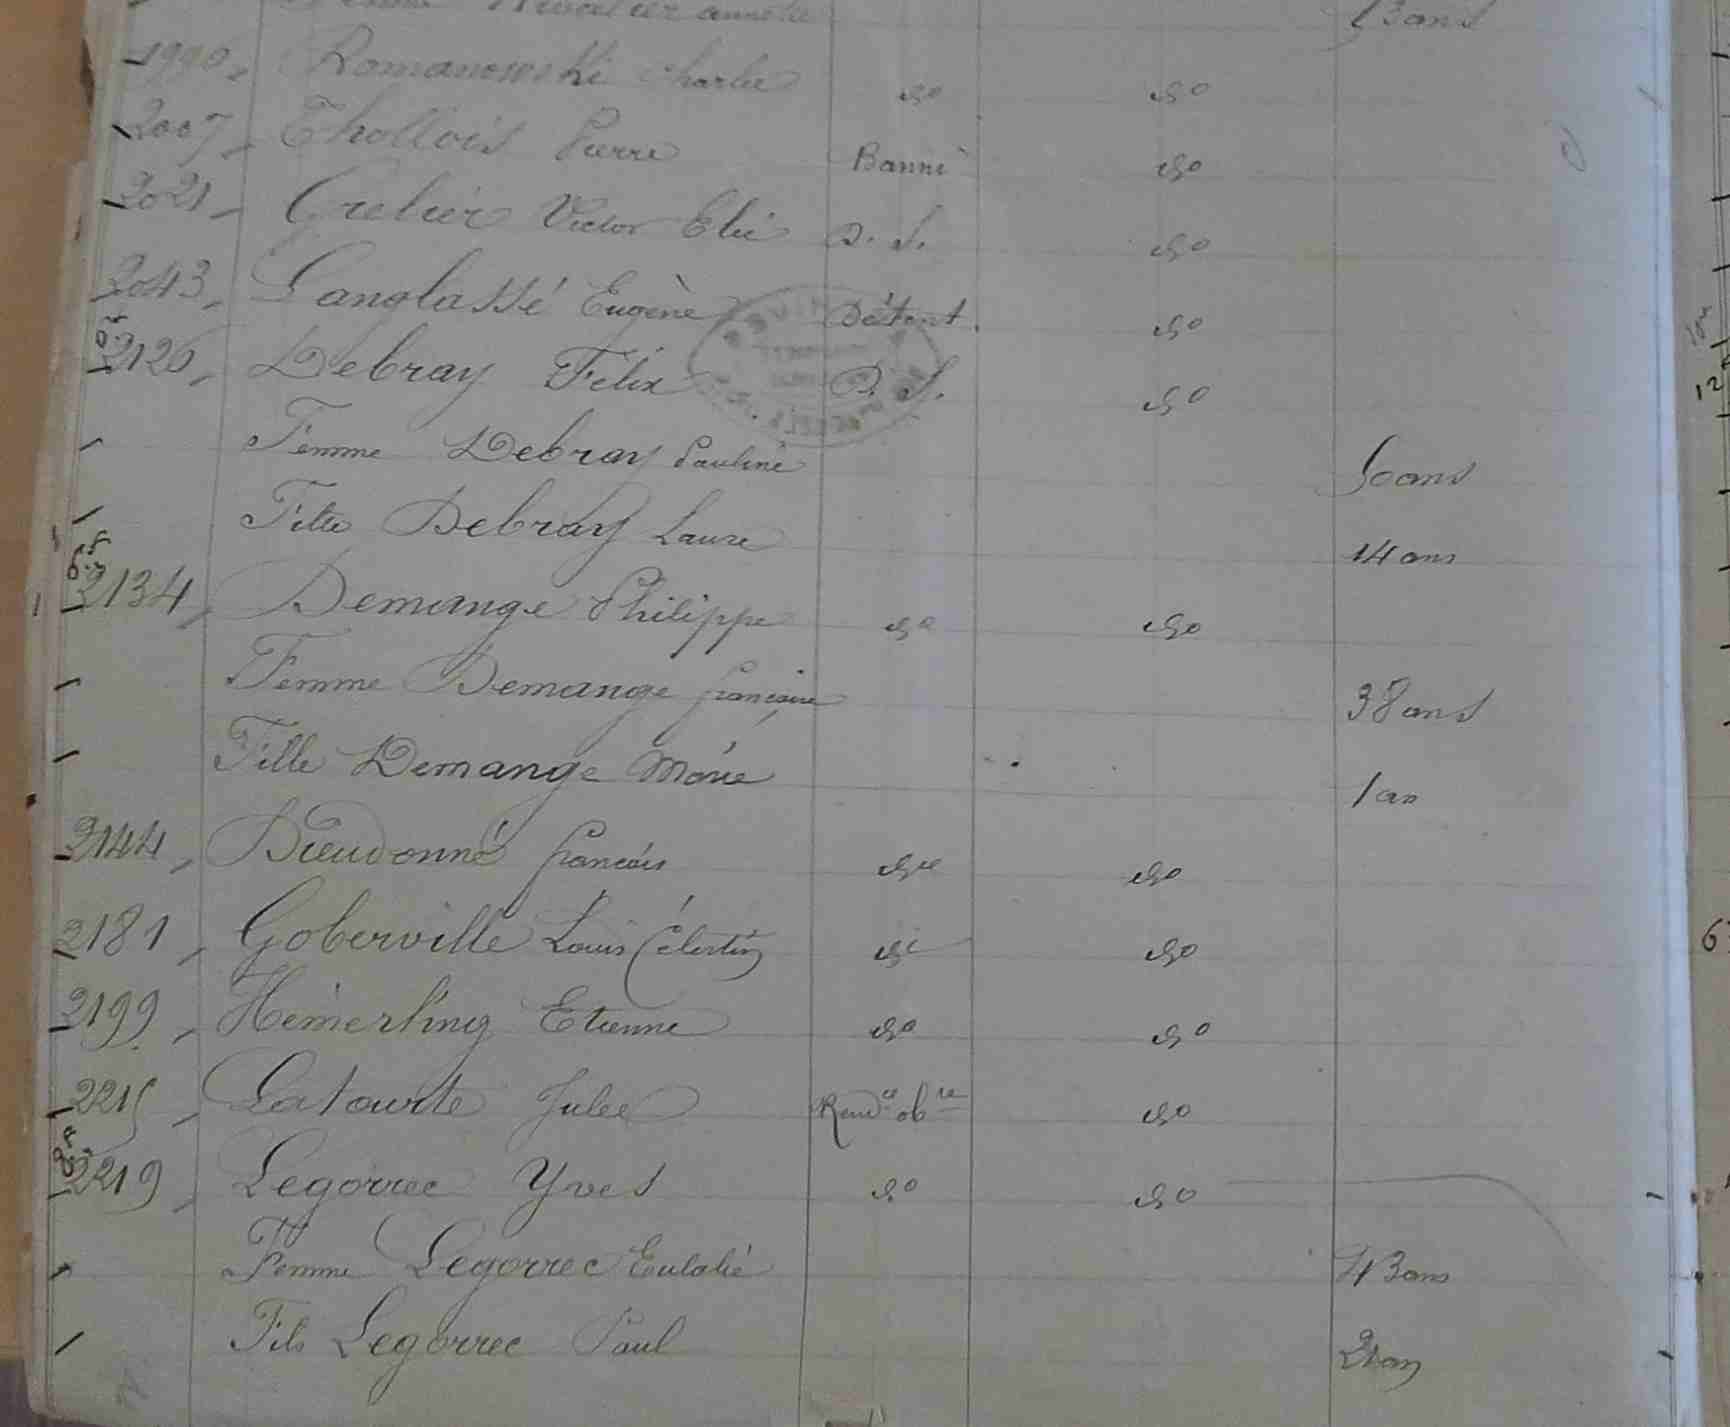 13 ans
1990 Romanowski Charles do do
2007 Thollois Pierre Banni do
2021 Grelier Victor Elie D. S. do
2043 Langlassé Eugène Détent do
2126 Debray Félix D. S. do
Femme Debray Pauline 50 ans
Fille Debray Laure 14 ans
2134 Demange Philippe do do
Femme Demange françoise 38 ans
Fille Demange Marie 1 an
2144 Dieudonné françois do do
2181 Goberville Louis Célestin do do
2199 Hémerling Etienne do do
2215 Latourte Jules Rend ce ob re do
2219 Legorrec Yves do do
Femme Legorrec Eulalie 43 ans
Fils Legorrec Paul